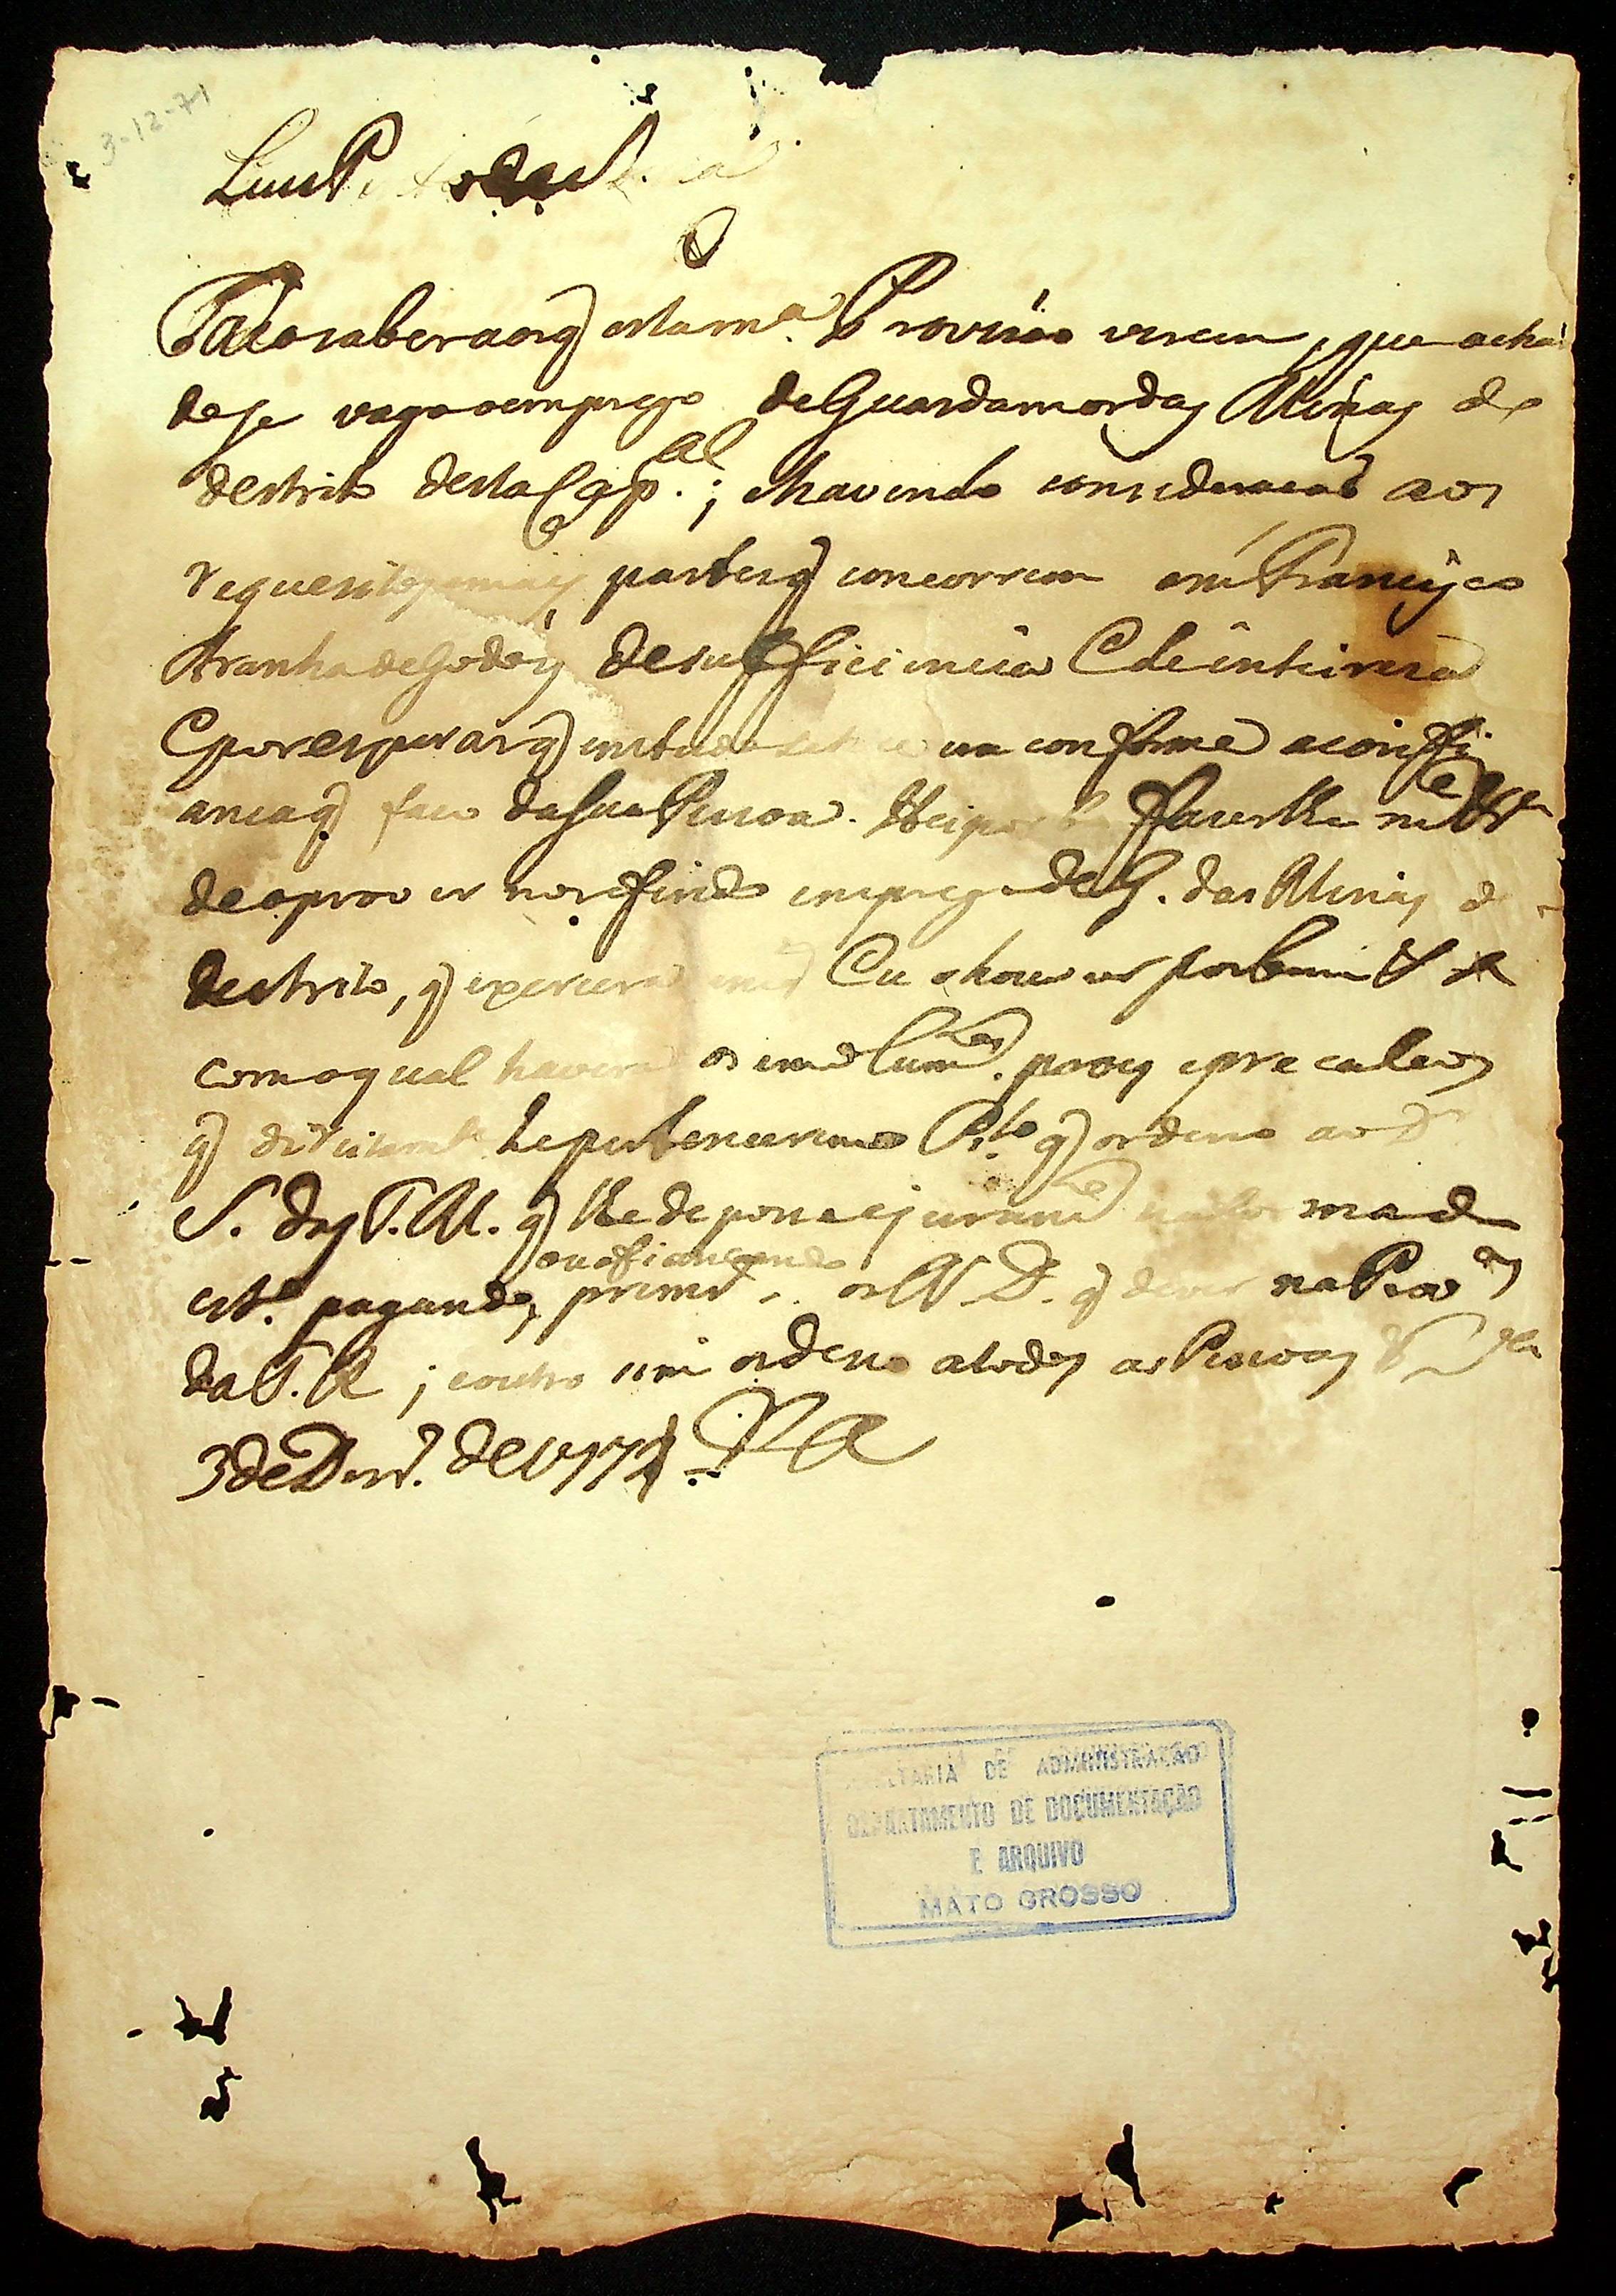 3-12-71
Luis P
Faço saber aos q̃ esta m.ª Provizão virem, que achã
dose vago o emprego de Guardamor das Minas do
destrito desta Cap.al; e havendo consideracaõ aos
requesitos, e mais partes q̃ concorrem em Francisco
Aranha de Godoy de sufficiencia e de inteireza
e por esperar q̃ em tudo conforme a confi
anca q̃ faco da sua Pessoa. Hei por bem fazer lhe m.ce
de o prover no referido emprego de G. das Minas do
destrito, q̃ exercera Eu o houver por bem
com o qual haverá os emolum.tos, proes e precalcos
q̃ direitam.te lhe pertencerem P.lo q̃ ordeno ao
S. das T. M. q̃ lhe de posse e juram.to na forma do
ou afiancando
est.º pagando prim.º os N. D. q̃ dever na
da R. F.; e outro sim ordeno a todas as Pessoas
3 de Dezr.º de 1771
SECRETARIA DE ADMINISTRAÇÃO
DEPARTAMENTO DE DOCUMENTAÇÃO
E ARQUIVO
MATO GROSSO